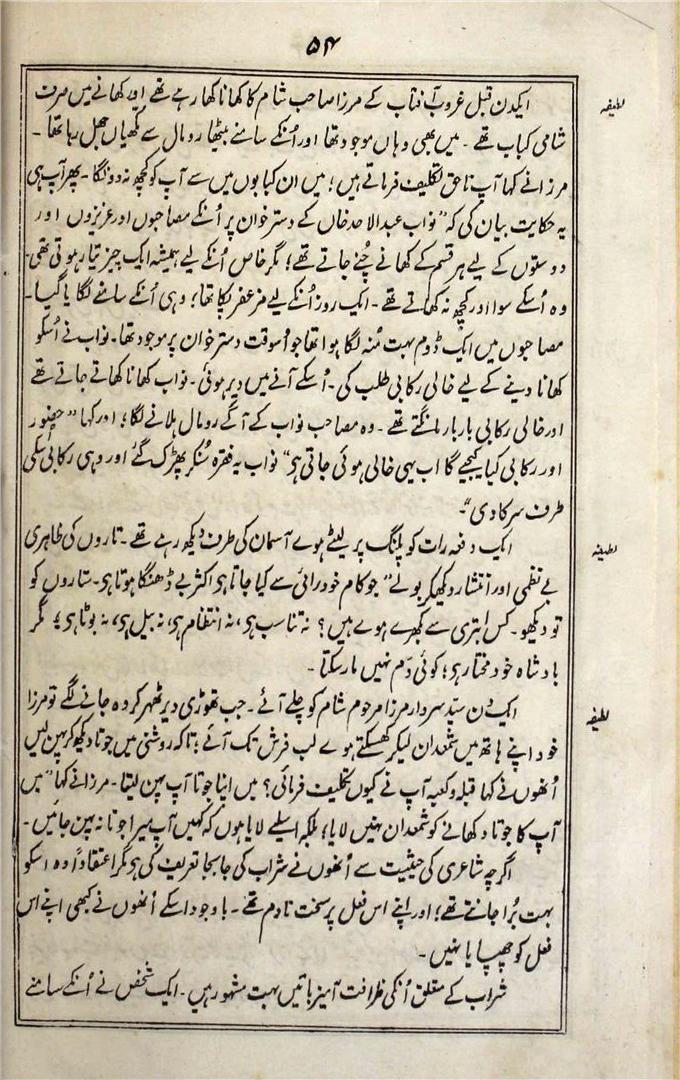 ۵۴
لطیفہ
ایکدن قبل غروب آفتاب کے مرزا صاحب شام کا کھانا کھا رہے تھے اور کھانے میں صرف
شامی کباب تھے ۔ میں بھی وہاں موجود تھا اور اُنکے سامنے بیٹھا رومال سے مکھیاں جھل رہا تھا ۔
مرزا نے کہا آپ ناحق تکلیف فرماتے ہیں؛ میں ان کبابوں میں سے آپ کو کچھ نہ دونگا ۔ پھر آپ ہی
یہ حکایت بیان کی کہ ”نواب عبدالاحد خاں کے دستر خوان پر اُنکے مصاحبوں اور عزیزوں اور
دوستوں کے لیے ہر قسم کے کھانے چُنے جاتے تھے؛ مگر خاص اُنکے لیے ہمیشہ ایک چیز تیار ہوتی تھی۔
وہ اُسکے سوا اور کچھ نہ کھاتے تھے ۔ ایک روز اُنکے لیے مزعفر پکا تھا؛ وہی اُنکے سامنے لگایا گیا۔
مصاحبوں میں ایک ڈوم بہت مُنہ لگا ہوا تھا جو اُسوقت دستر خوان پر موجود تھا۔ نواب نے اُسکو
کھانا دینے کے لیے خالی رکابی طلب کی ۔ اُسکے آنے میں دیر ہوئی ۔ نواب کھانا کھاتے جاتے تھے
اور خالی رکابی بار بار مانگتے تھے ۔ وہ مصاحب نواب کے آگے رومال ہلانے لگا؛ اور کہا ”حضور
اور رکابی کیا کیجیے گا اب یہی خالی ہوئی جاتی ہی“ نواب یہ فقرہ سُنکر پھڑک گئے اور وہی رکابی اُسکی
طرف سرکا دی“۔
لطیفہ
ایک دفعہ رات کو پلنگ پر لیٹے ہوے آسمان کی طرف دیکھ رہے تھے ۔ تاروں کی ظاہری
بے نظمی اور انتشار دیکھکر بولے ”جو کام خود رائی سے کیا جاتا ہی اکثر بے ڈھنگا ہوتا ہی ۔ ستاروں کو
تو دیکھو ۔ کس ابتری سے بکھرے ہوے ہیں؟ نہ تناسب ہی، نہ انتظام ہی، نہ بیل ہی، نہ بوٹا ہی؛ مگر
بادشاہ خود مختار ہی؛ کوئی دَم نہیں مار سکتا ۔
لطیفہ
ایک دن سید سردار مرزا مرحوم شام کو چلے آئے ۔ جب تھوڑی دیر ٹھہر کر وہ جانے لگے تو مرزا
خود اپنے ہاتھ میں شمعدان لیکر کھسکتے ہوے لب فرش تک آئے؛ تاکہ روشنی میں جوتا دیکھ کر پہن لیں
اُنھوں نے کہا قبلہ و کعبہ آپ نے کیوں تکلیف فرمائی؟ میں اپنا جوتا آپ پہن لیتا ۔ مرزا نے کہا ”میں
آپ کا جوتا دکھانے کو شمعدان نہیں لایا؛ بلکہ اسلیے لایا ہوں کہ کہیں آپ میرا جوتا نہ پہن جائیں ۔
اگرچہ شاعری کی حیثیت سے اُنھوں نے شراب کی جا بجا تعریف کی ہی مگر اعتقاداً وہ اسکو
بہت بُرا جانتے تھے؛ اور اپنے اس فعل پر سخت نادم تھے ۔ باوجود اسکے اُنھوں نے کبھی اپنے اس
فعل کو چھپایا نہیں ۔
شراب کے متعلق اُنکی ظرافت آمیز باتیں بہت مشہور ہیں ۔ ایک شخص نے اُنکے سامنے